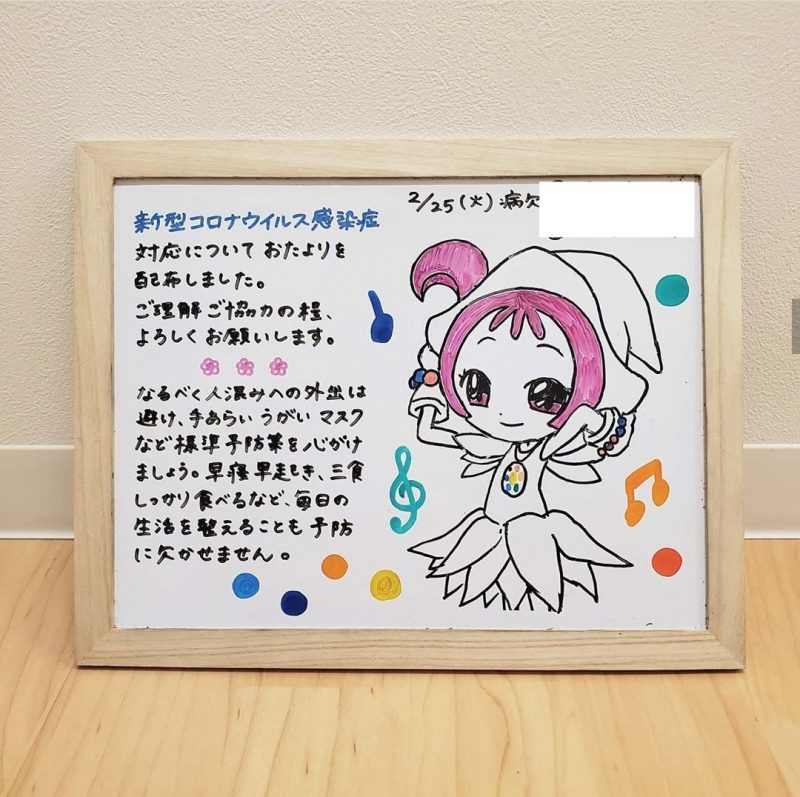 2/25(火) 病欠
新型コロナウイルス感染症
対応について おたよりを
配布しました。
ご理解ご協力の程、
よろしくお願いします。
なるべく人混みへの外出は
避け、手あらい うがい マスク
など標準予防策を心がけ
ましょう。早寝早起き、三食
しっかり食べるなど、毎日の
生活を整えることも予防
に欠かせません。